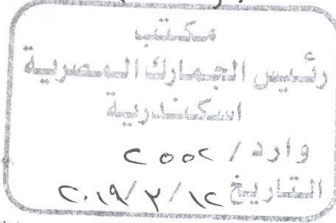 مكتب
رئيس الجمارك المصرية
اسكندرية
وارد / ٢٥٥٢
التاريخ ١٢/٣/٢٠١٩